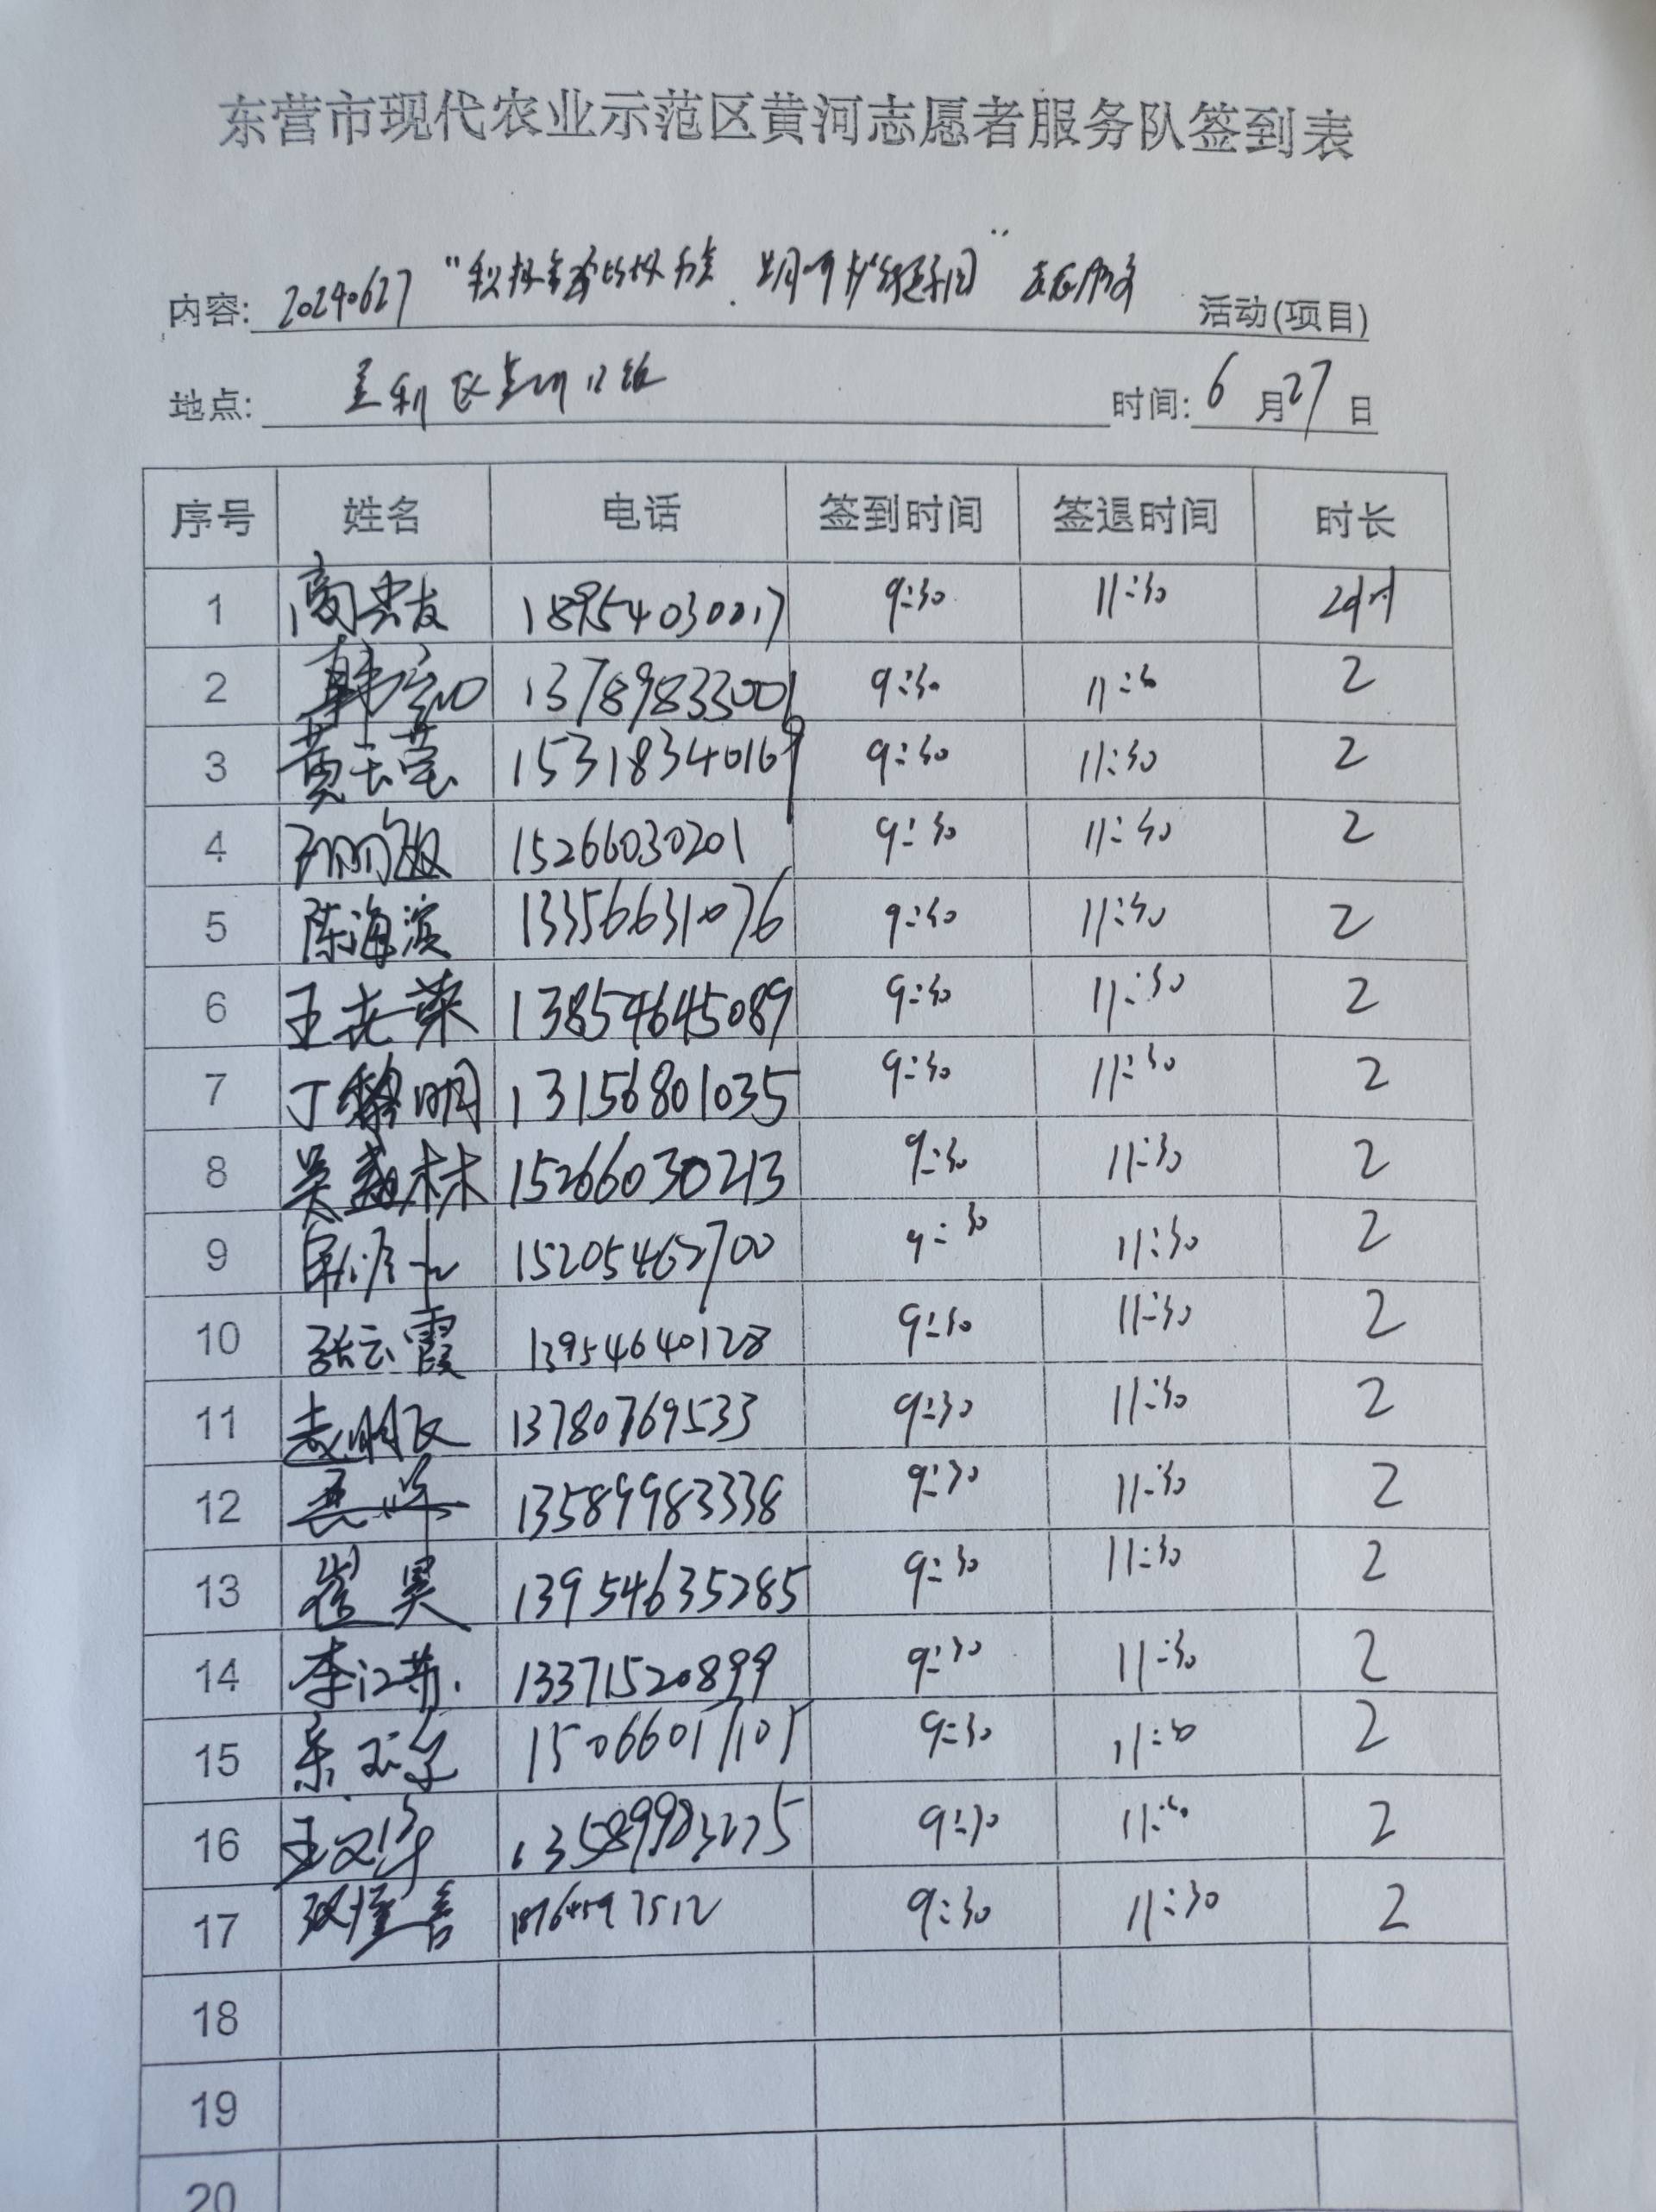 东营市现代农业示范区黄河志愿者服务队签到表
内容: 20240627 “ ” 志愿服务 活动(项目)
地点: 垦利区垦 时间: 6 月 27 日
序号 姓名 电话 签到时间 签退时间 时长
1 18954030017 9:30 11:30 2小时
2 13789833001 9:30 11:30 2
3 黄 15318340169 9:30 11:30 2
4 15266030201 9:30 11:30 2
5 陈海滨 13356631076 9:30 11:30 2
6 王志荣 13854645089 9:30 11:30 2
7 丁黎明 13156801035 9:30 11:30 2
8 吴 林 15266030213 9:30 11:30 2
9 15205462700 9:30 11:30 2
10 张云霞 13954640128 9:30 11:30 2
11 13780769533 9:30 11:30 2
12 13589983338 9:30 11:30 2
13 崔昊 13954635285 9:30 11:30 2
14 李江苏 13371520899 9:30 11:30 2
15 15066017105 9:30 11:30 2
16 王文 13589983275 9:30 11:30 2
17 9:30 11:30 2
18
19
20